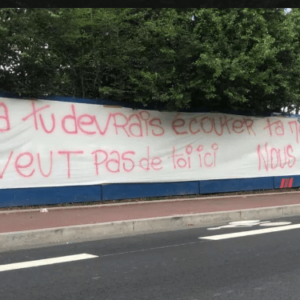 a tu devrais écouter ta m
veut pas de toi ici nous